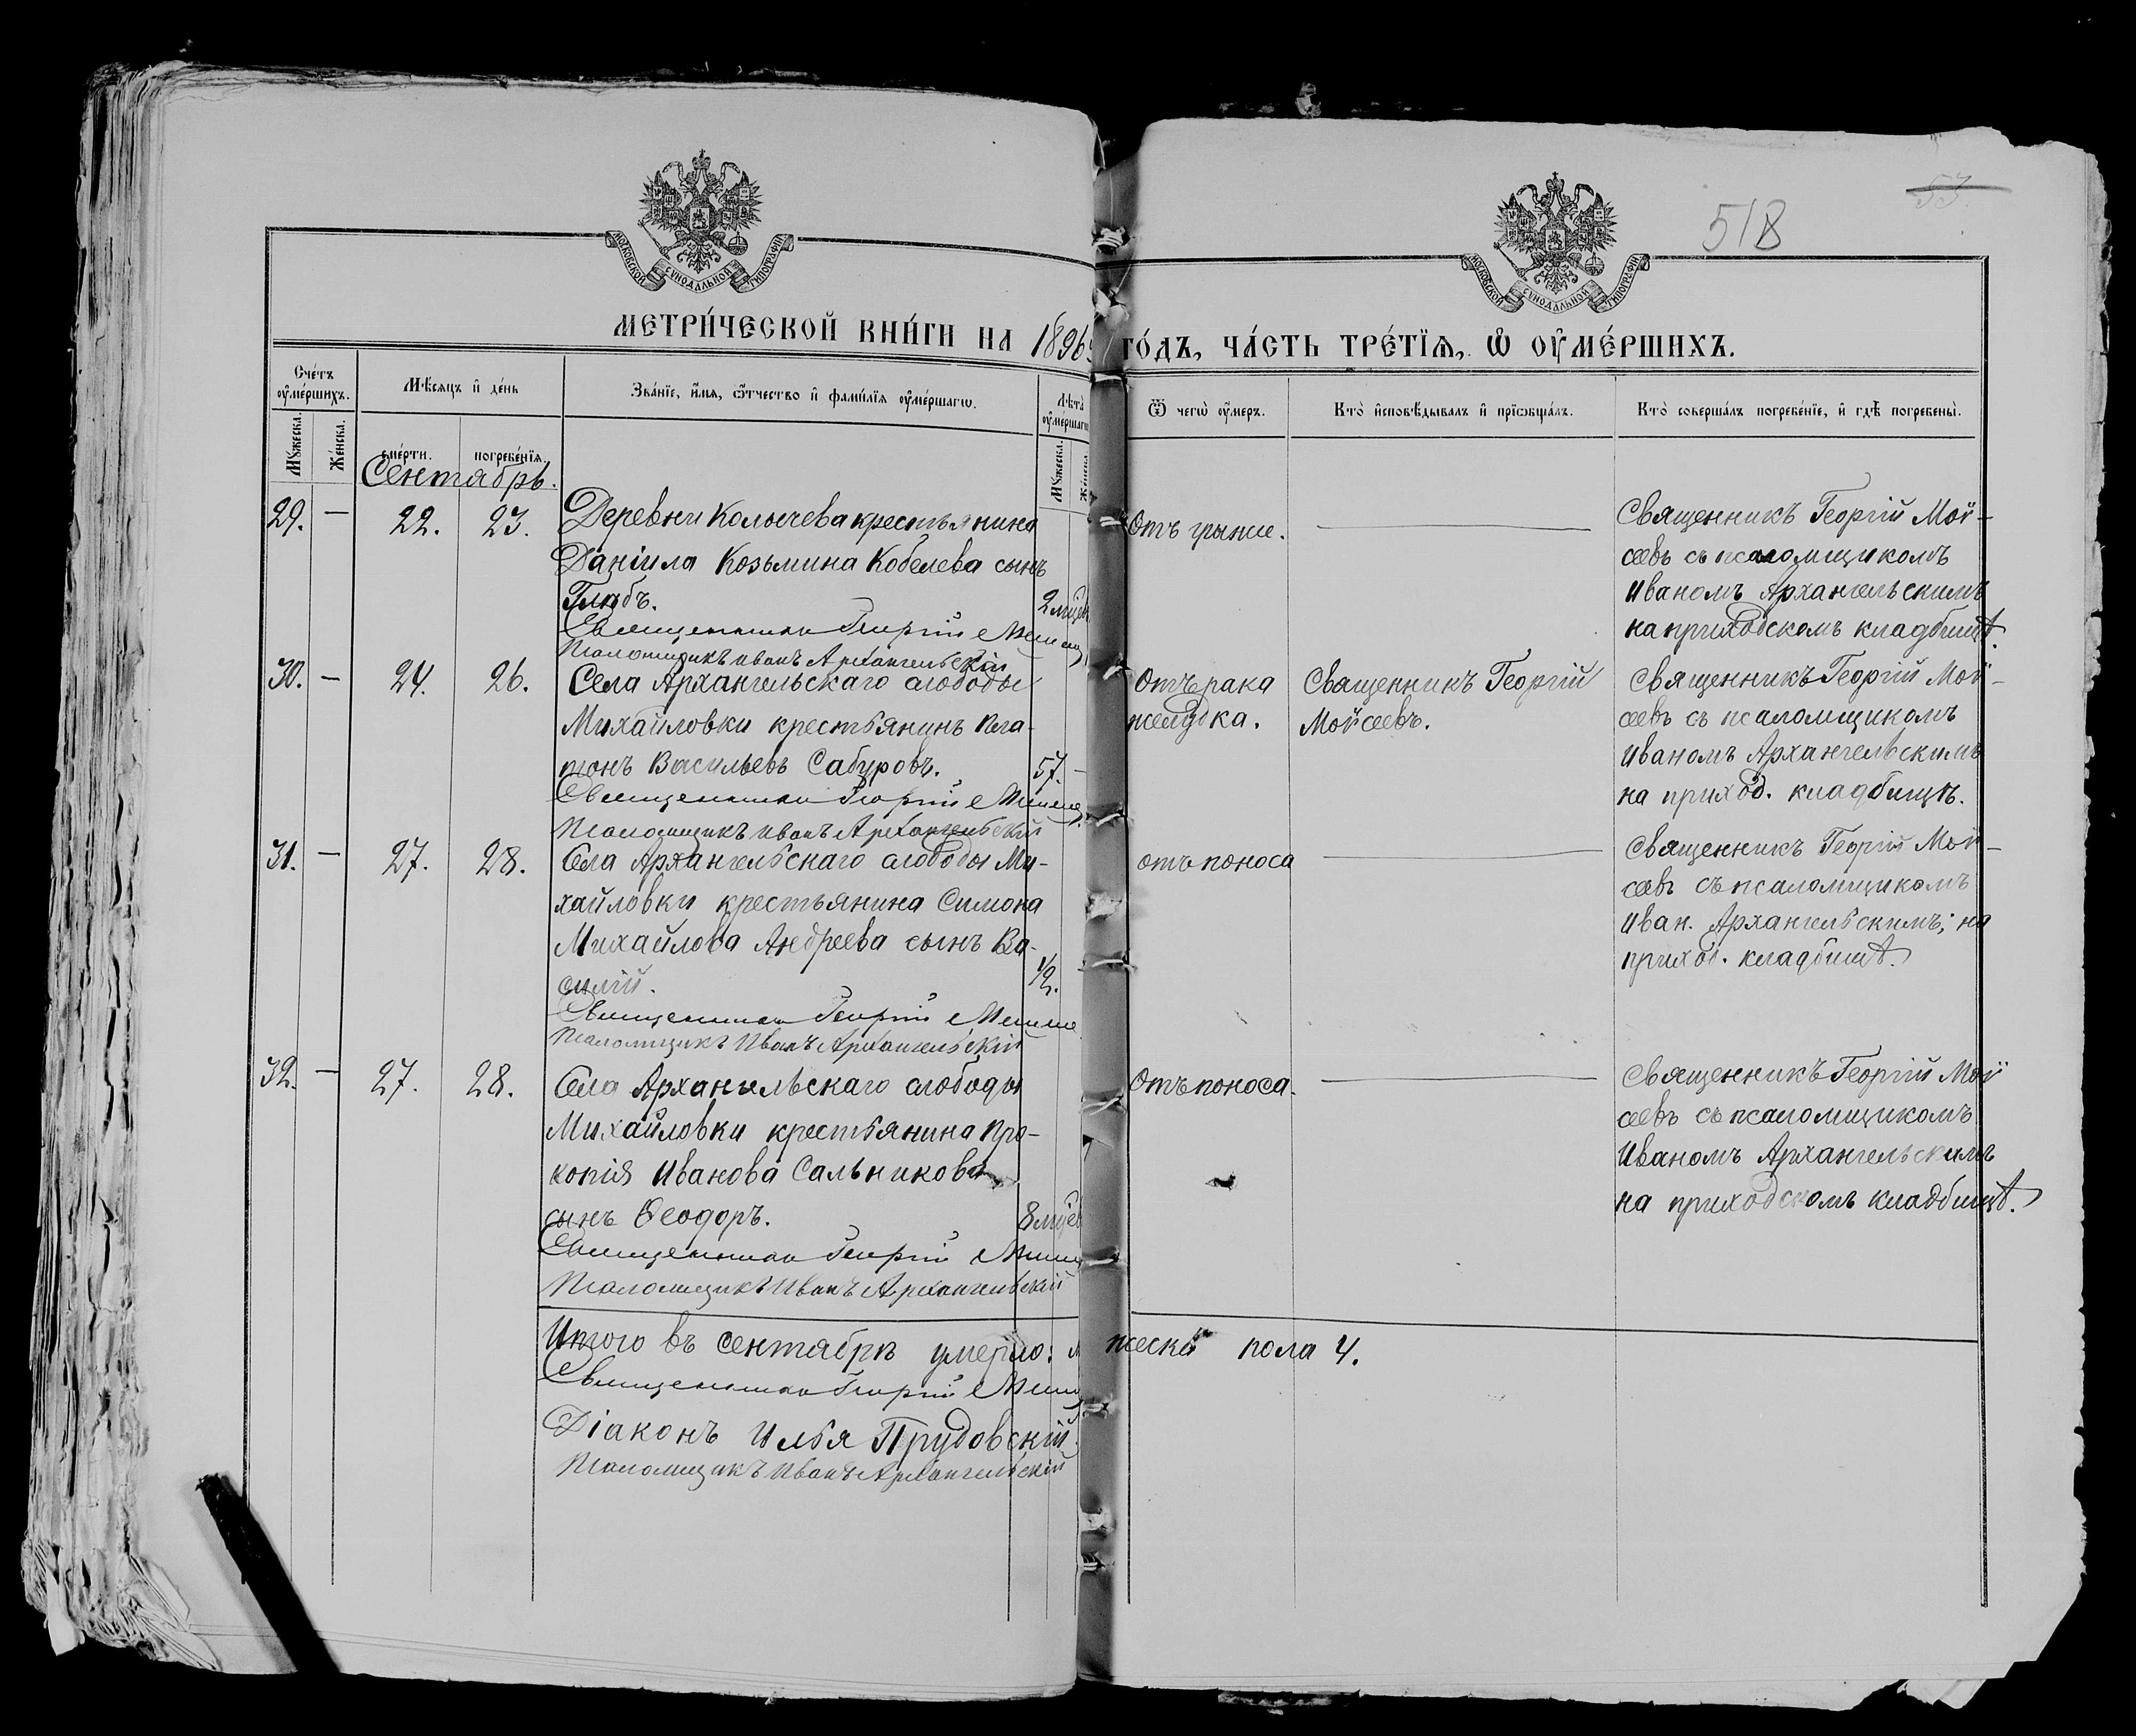 53.
518
МОСКОВСКОЙ СѴНОДАЛЬНОЙ ТИПОГРАФІИ
МОСКОВСКОЙ СѴНОДАЛЬНОЙ ТИПОГРАФІИ
МЕТРИ́ЧЕСКОЙ КНИ́ГИ НА 1896 ГО́ДЪ, ЧА́СТЬ ТРЕ́ТЇѦ, Ѡ҆ ОУ҆МЕ́РШИХЪ.
Сче́тъ оу҆ме́ршихъ.
Мѣ́сѧцъ и҆ де́нь
Зва́нїе, и҆́мѧ, ѻ҆́тчество и҆ фами́лїѧ оу҆ме́ршагѡ.
Лѣ̑та оу҆ме́ршагѡ
Ѿ чегѡ̀ оу҆́меръ.
Кто̀ и҆сповѣ́дывалъ и҆ прїѡбща́лъ.
Кто̀ соверша́лъ погребе́нїе, и҆ гдѣ̀ погребены̀.
Мꙋ́жеска.
Же́нска.
сме́рти.
погребе́нїѧ.
Мꙋ́жеска.
Же́нска.
Сентябрь.
29. — 22. 23. Деревни Колычева крестьянина
Даніила Козьмина Кобелева сынъ
Глѣбъ. 2 мѣсяц
Священникъ Георгій Моисе
Псаломщикъ Иванъ Архангельскій
Отъ грыжи. —
Священникъ Георгій Мои-
сеевъ съ псаломщикомъ
Иваномъ Архангельскимъ
на приходскомъ кладбищѣ.
30. — 24. 26. Села Архангельскаго слободы
Михайловки крестьянинъ Пла-
тонъ Васильевъ Сабуровъ. 57. —
Священникъ Георгій Моисее
Псаломщикъ Иванъ Архангельскій
Отъ рака
желудка.
Священникъ Георгій
Моисеевъ.
Священникъ Георгій Мои-
сеевъ съ псаломщикомъ
Иваномъ Архангельскимъ
на приход. кладбищѣ.
31. — 27. 28. Села Архангельскаго слободы Ми-
хайловки крестьянина Симона
Михайлова Андреева сынъ Ва-
силій. 1/2.
Священникъ Георгій Моисее
Псаломщикъ Иванъ Архангельскій
отъ поноса —
Священникъ Георгій Мои-
сеевъ съ псаломщикомъ
Иван. Архангельскимъ; на
приход. кладбищѣ.
32. — 27. 28. Села Архангельскаго слободы
Михайловки крестьянина Про-
копія Иванова Сальникова
сынъ Ѳеодоръ. 8 мѣсяц
Священникъ Георгій Моисе
Псаломщикъ Иванъ Архангельскій
Отъ поноса. —
Священникъ Георгій Мои
сеевъ съ псаломщикомъ
Иваномъ Архангельскимъ
на приходскомъ кладбищѣ.
Итого въ сентябрѣ умерло: м жеска пола 4.
Священникъ Георгій Моис
Діаконъ Илья Прудовскій.
Псаломщикъ Иванъ Архангельскій